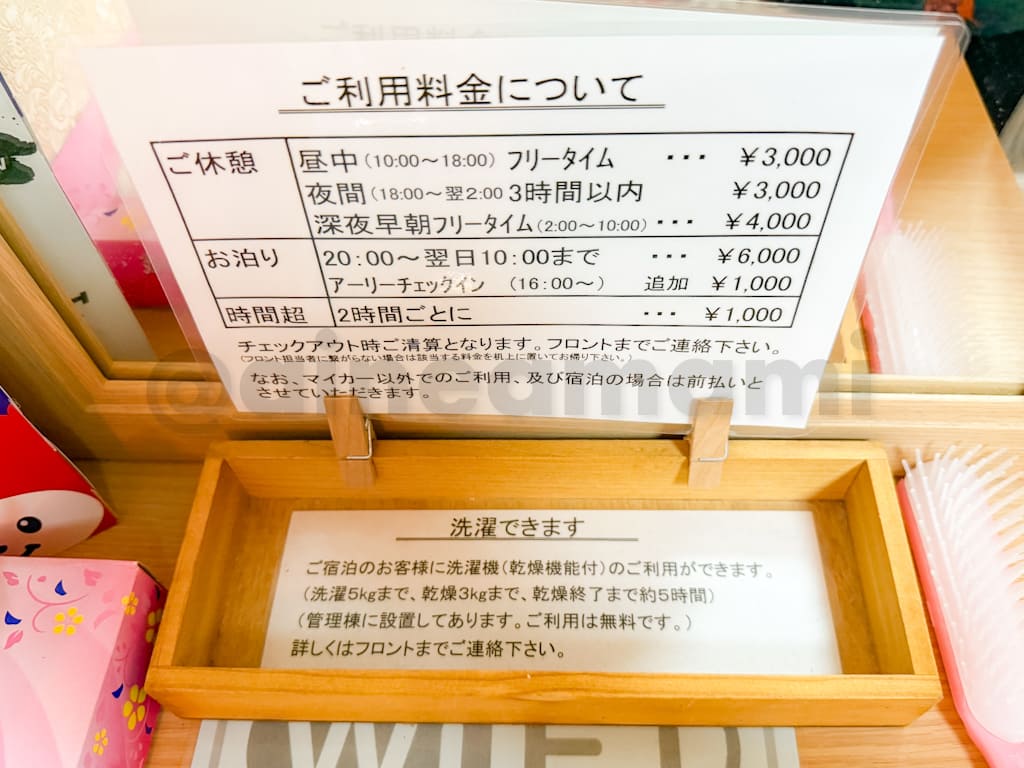 ご利用料金について
ご休憩 昼中(10:00〜18:00) フリータイム ・・・ ￥3,000
夜間(18:00〜翌2:00 3時間以内 ￥3,000
深夜早朝フリータイム(2:00〜10:00) ・・・ ￥4,000
お泊り 20:00〜翌日10:00まで ・・・ ￥6,000
アーリーチェックイン (16:00〜) 追加 ￥1,000
時間超 2時間ごとに ・・・ ￥1,000
チェックアウト時ご清算となります。フロントまでご連絡下さい。
(フロント担当者に繋がらない場合は該当する料金を机上に置いてお帰り下さい。)
なお、マイカー以外でのご利用、及び宿泊の場合は前払いと
させていただきます。
@aineamami
洗濯できます
ご宿泊のお客様に洗濯機(乾燥機能付)のご利用ができます。
(洗濯5kgまで、乾燥3kgまで、乾燥終了まで約5時間)
(管理棟に設置してあります。ご利用は無料です。)
詳しくはフロントまでご連絡下さい。